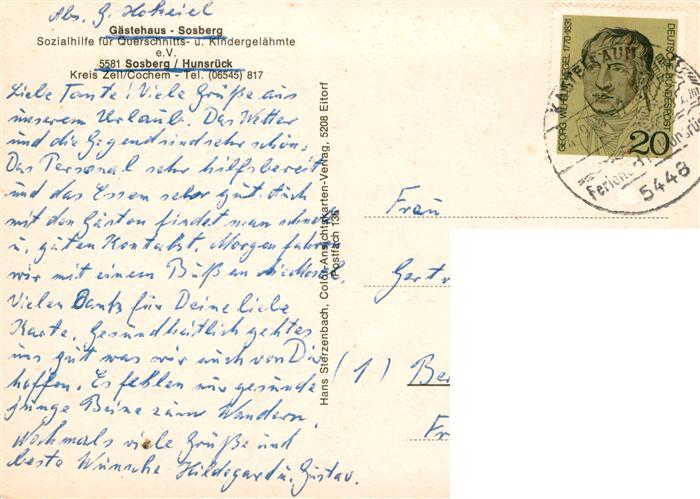 Abs. G. 
Gästehaus - Sosberg
Sozialhilfe für Querschnitts- u. Kindergelähmte
e.V.
5581 Sosberg / Hunsrück
Kreis Zell/Cochem - Tel. (06545) 817
Liebe Tante! Viele Grüße aus
unserem Urlaub. Das Wetter
und die Gegend sind sehr schön.
Das Personal sehr hilfsbereit
und das Essen sehr gut. Auch
mit den Gästen findet man schnell
u. guten Kontakt. Morgen fahren
wir mit einem Buß an die Mosel.
Vielen Dank für Deine liebe
Karte. Gesundheitlich geht es
uns gut was wir auch von Dir
hoffen. Es fehlen nur gesunde
junge Beine zum Wandern.
Nochmals viele Grüße und
beste Wünsche Hildegard u. Gustav.
Hans Sterzenbach, Color-Ansichtskarten-Verlag, 5208 Eitorf
Postfach 135
GEORG WILHELM HEGEL 1770-1831
DEUTSCHE BUNDESPOST
20
KASTELLAUN
5448
Frau
Gert
(1) Be
Fr